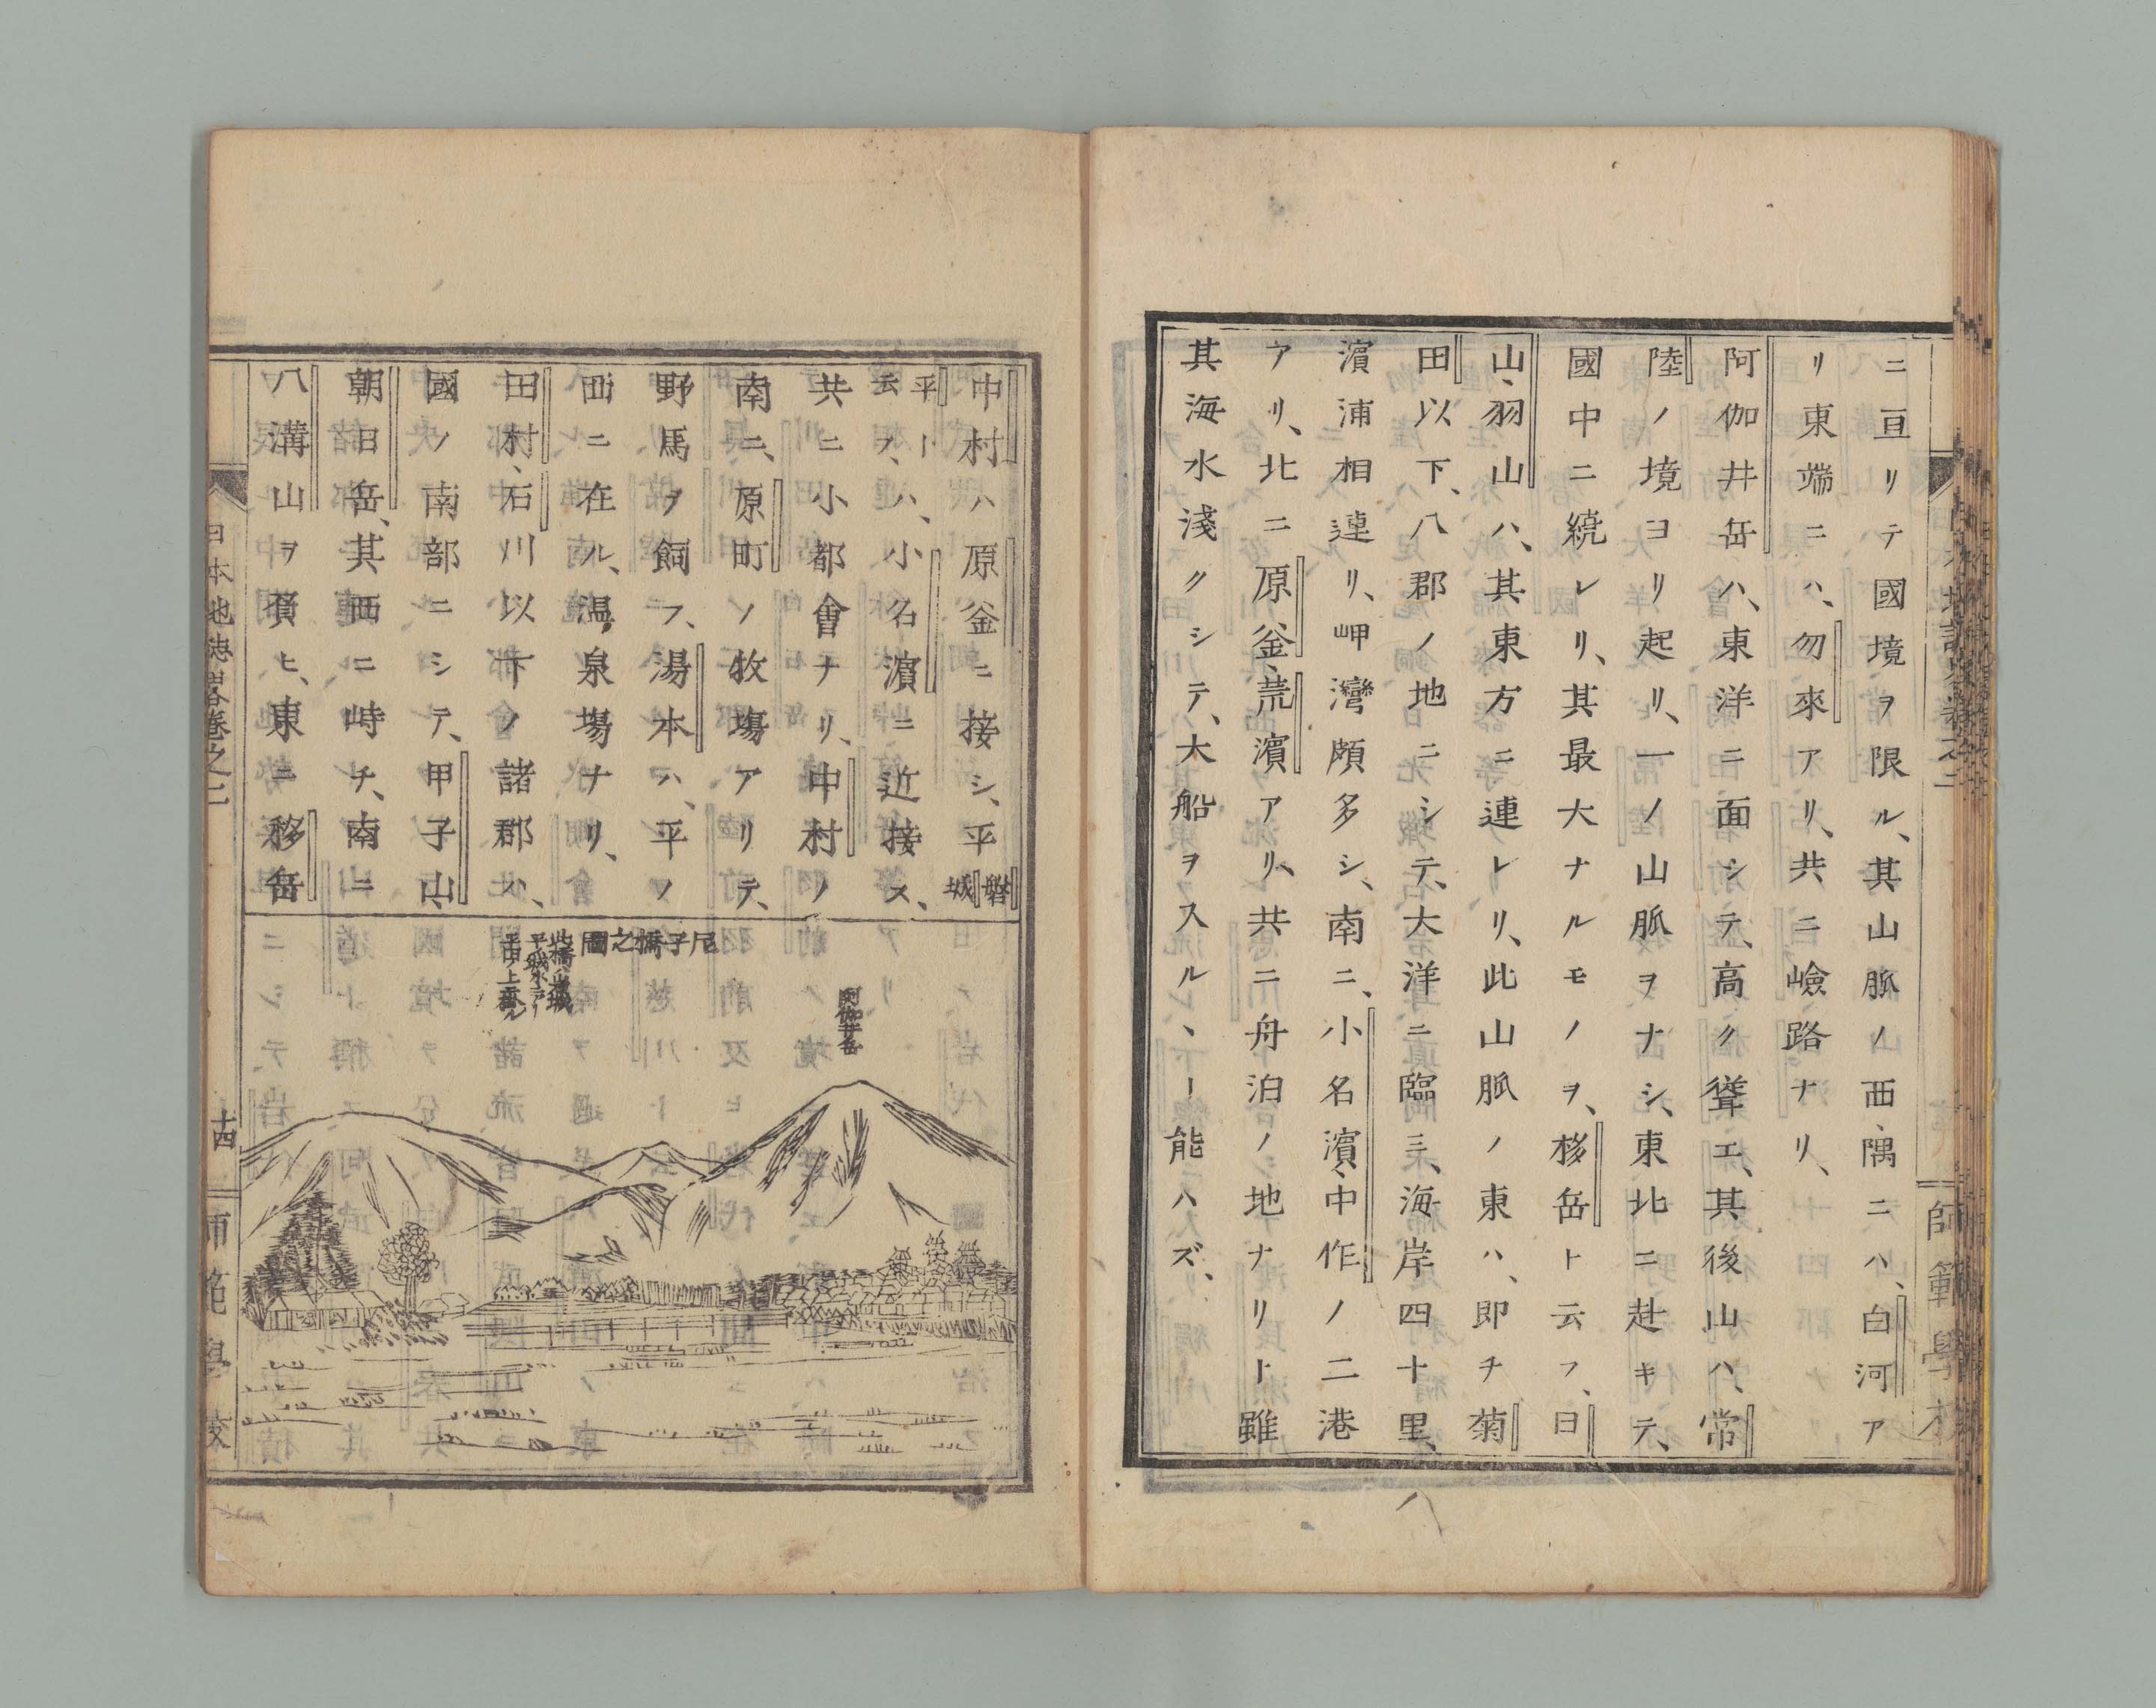 ニ亘リテ國境ヲ限ル、其山脈ノ西隅ニハ、白河ア
リ東端ニハ、勿來アリ、共ニ嶮路ナリ、
阿伽井岳ハ、東洋ニ面シテ、高ク聳エ、其後山ハ、常
陸ノ境ヨリ起リ、一ノ山脈ヲナシ、東北ニ赴キテ、
國中ニ繞レリ、其最大ナルモノヲ、移岳ト云フ、日
山、羽山ハ、其東方ニ連レリ、此山脈ノ東ハ、即チ菊
田以下、八郡ノ地ニシテ、大洋ニ臨ミ、海岸四十里、
濱浦相連リ、岬灣頗多シ、南ニ、小名濱、中作ノ二港
アリ、北ニ原釡、荒濱アリ、共ニ舟泊ノ地ナリト雖
其海水淺クシテ、大船ヲスル、ー能ハズ、
師範學校
中村ハ原釡ニ接シ、平磐城
平ー云フ、ハ、小名濱ニ近接ス、
共ニ小都會ナリ、中村ノ
南ニ、原町ノ牧塲アリテ、
野馬ヲ飼フ、湯本ハ、平ノ
西ニ在ル、溫泉場ナリ、
田村、石川以下ノ諸郡ハ、
國ノ南部ニシテ、甲子山、
朝日岳、其西ニ峙チ、南ニ
八溝山ヲ負ヒ、東ニ移岳
尼子橋之圖
阿伽井岳
日本地誌畧卷之二
十四
師範學校